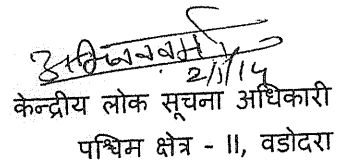 2/1/14
केन्द्रीय लोक सूचना अधिकारी
पश्चिम क्षेत्र - II, वडोदरा